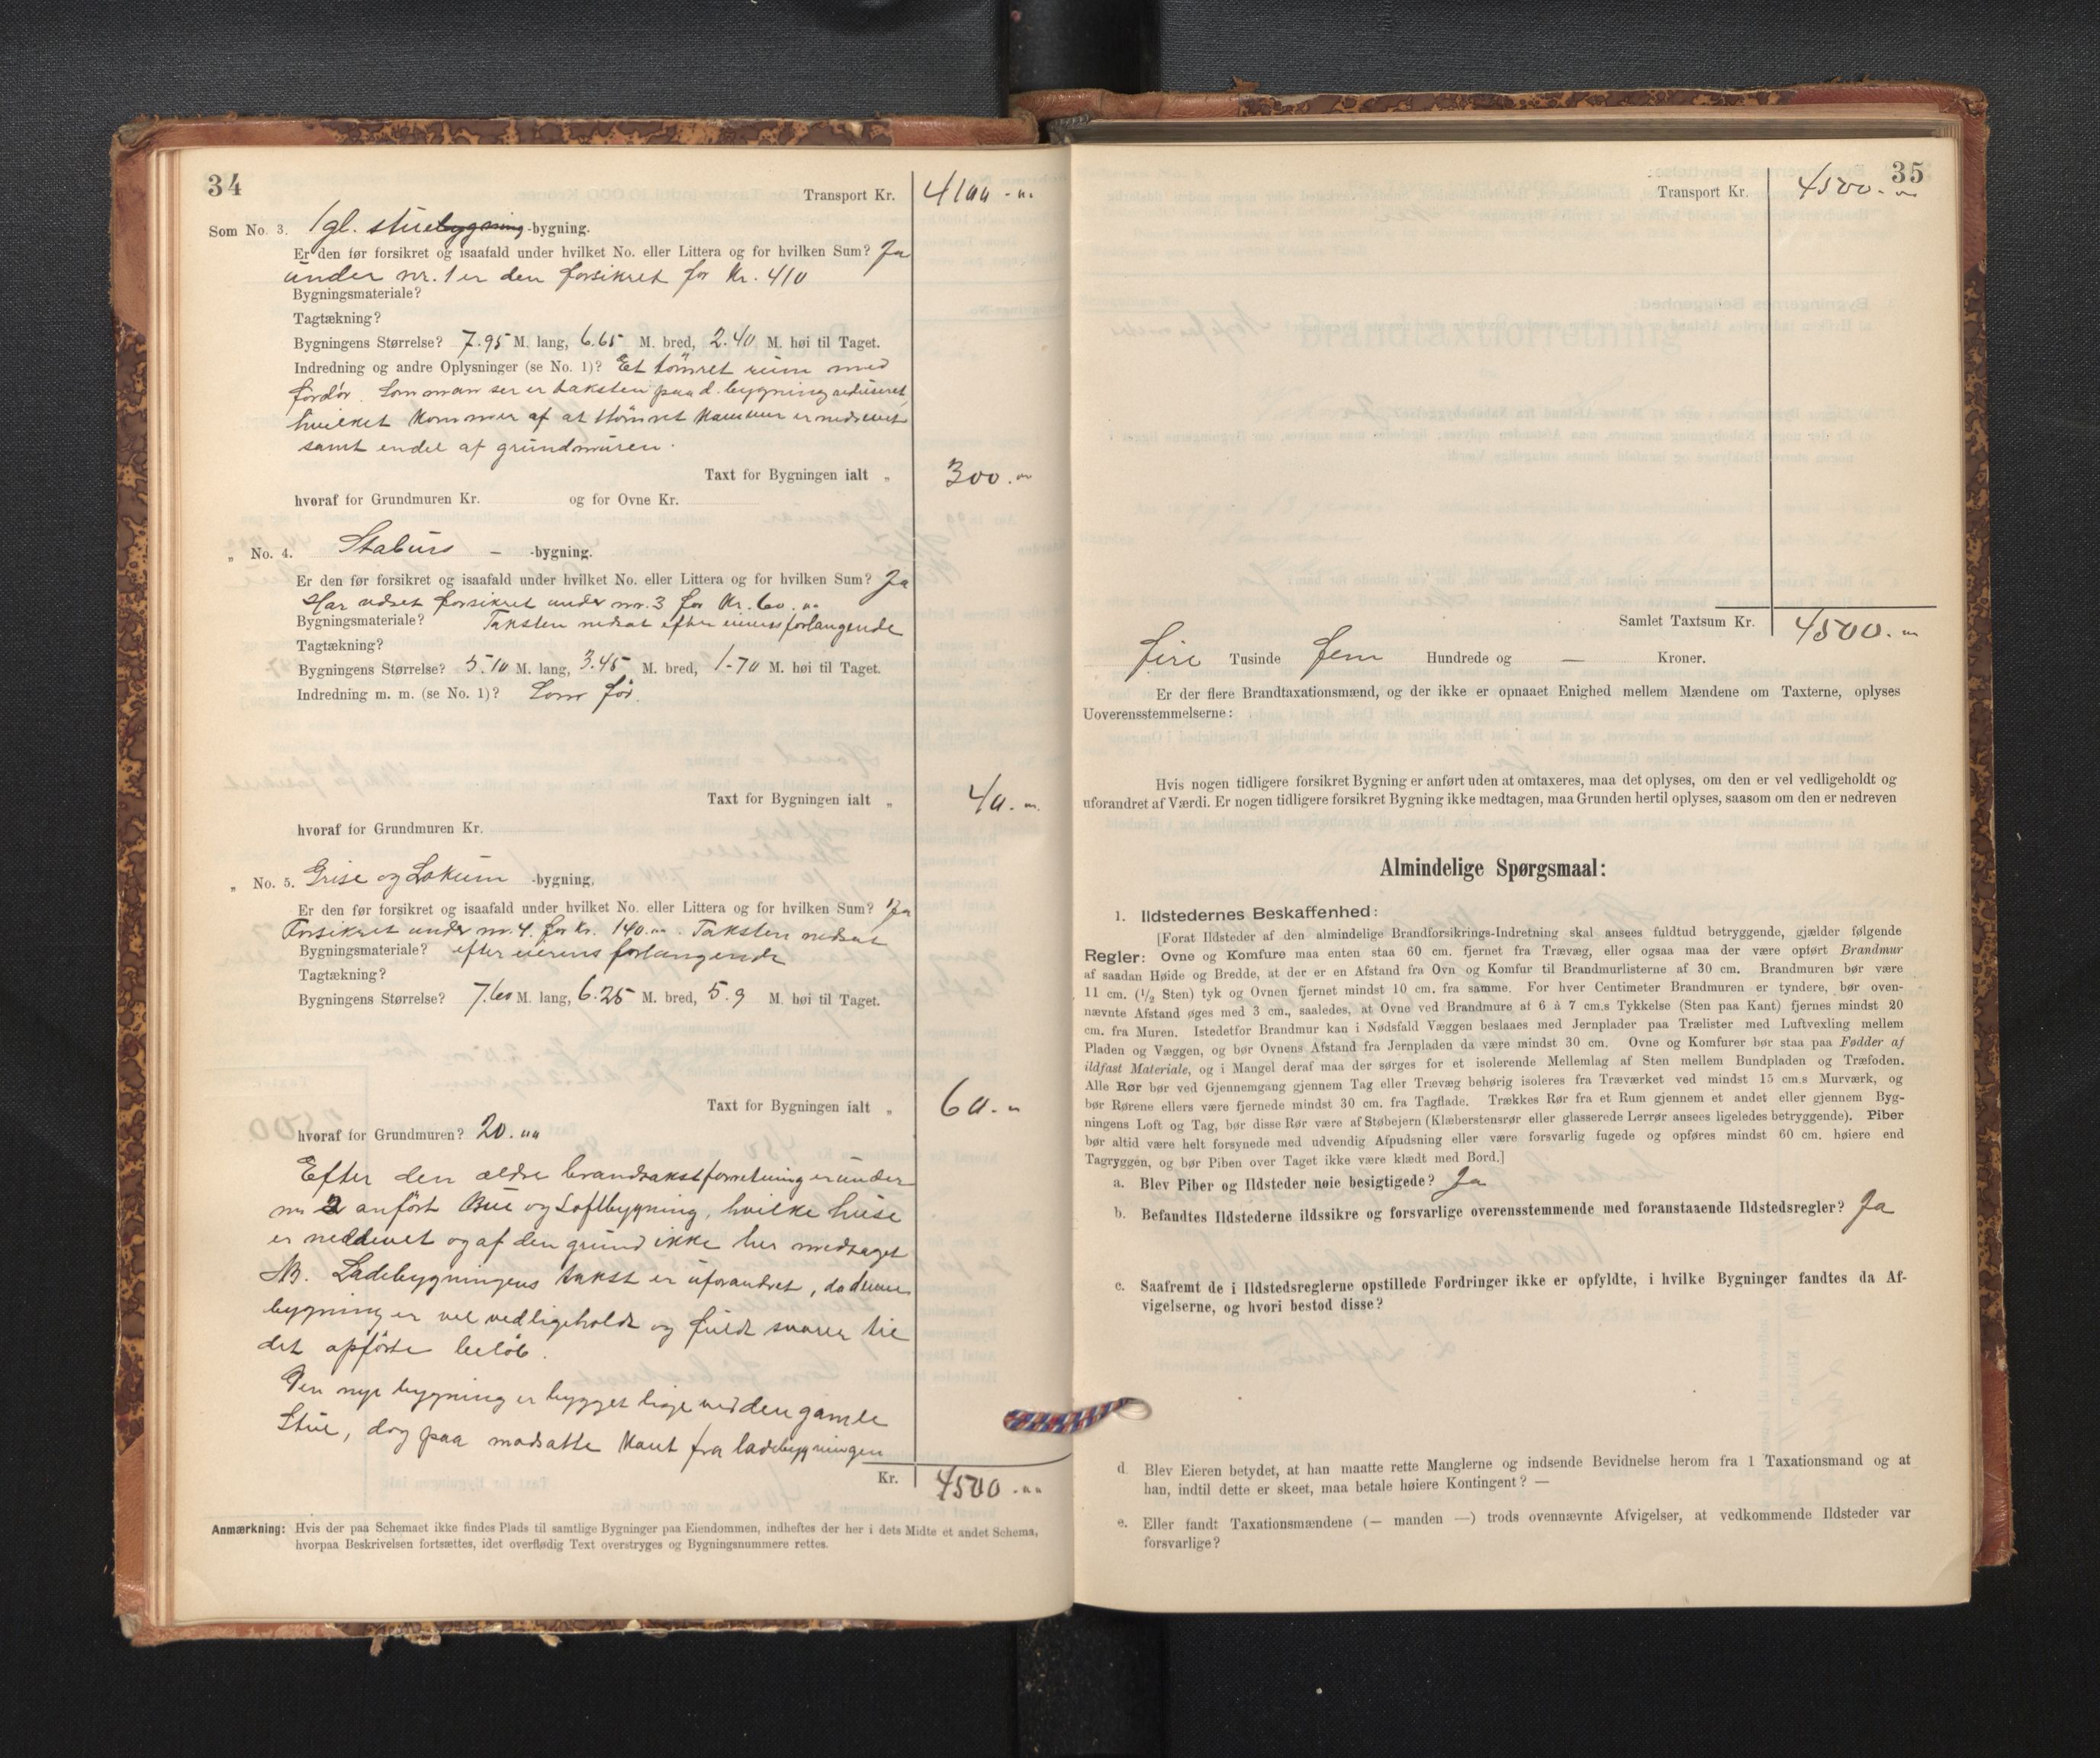 34
Transport Kr. 4100.-
Som No. 3. 1 gl. stuebygning -bygning.
Er den før forsikret og isaafald under hvilket No. eller Littera og for hvilken Sum? Ja
under nr. 1 er den forsikret for Kr. 410
Bygningsmateriale?
Tagtækning?
Bygningens Størrelse? 7.95 M. lang, 6.65 M. bred, 2.40 M. høi til Taget.
Indredning og andre Oplysninger (se No. 1)? Et tömret rum med
fordör. Som man ser er taksten paa d. bygning reduseret,
hvilket kommer af at tömret kammer er nedrevet
samt endel af grundmuren.
Taxt for Bygningen ialt „ 300.-
hvoraf for Grundmuren Kr. og for Ovne Kr.
„ No. 4. Staburs - -bygning.
Er den før forsikret og isaafald under hvilket No. eller Littera og for hvilken Sum? Ja
Har været forsikret under nr. 3 for Kr. 60.-
Bygningsmateriale? Taksten nedsat efter eierens forlangende
Tagtækning?
Bygningens Størrelse? 5.10 M. lang, 3.45 M. bred, 1.70 M. høi til Taget.
Indredning m. m. (se No. 1)? Som för.
Taxt for Bygningen ialt „ 40.-
hvoraf for Grundmuren Kr.
„ No. 5. Grise og Lokum -bygning,
Er den før forsikret og isaafald under hvilket No. eller Littera og for hvilken Sum? Ja
Forsikret under nr. 4. for Kr. 140.-. Taksten nedsat
Bygningsmateriale? efter eierens forlangende
Tagtækning?
Bygningens Størrelse? 7.60 M. lang, 6.25 M. bred, 5.9 M. høi til Taget.
Taxt for Bygningen ialt „ 60.-
hvoraf for Grundmuren? 20.-
Efter den ældre brandtakstforretning er under
nr 2 anfört Bue og Loftbygning, hvilke huse
er neddevet og af den grund ikke her medtaget
NB. Ladebygningens takst er uforandret, da denne
bygning er vel vedligeholdt og fuldt svarer til
det opförte belöb.
Den nye bygning er bygget lige ved den gamle
Stue, dog paa modsatte kant fra ladebygningen
Kr. 4500.-
Anmærkning: Hvis der paa Schemaet ikke findes Plads til samtlige Bygninger paa Eiendommen, indheftes der her i dets Midte et andet Schema,
hvorpaa Beskrivelsen fortsættes, idet overflødig Text overstryges og Bygningsnummere rettes.
35
Transport Kr. 4500.-
Samlet Taxtsum Kr. 4500.-
Fire Tusinde Fem Hundrede og — Kroner.
Er der flere Brandtaxationsmænd, og der ikke er opnaaet Enighed mellem Mændene om Taxterne, oplyses
Uoverensstemmelserne:
Hvis nogen tidligere forsikret Bygning er anført uden at omtaxeres, maa det oplyses, om den er vel vedligeholdt og
uforandret af Værdi. Er nogen tidligere forsikret Bygning ikke medtagen, maa Grunden hertil oplyses, saasom om den er nedreven
Almindelige Spørgsmaal:
1. Ildstedernes Beskaffenhed:
[Forat Ildsteder af den almindelige Brandforsikrings-Indretning skal ansees fuldtud betryggende, gjælder følgende
Regler: Ovne og Komfure maa enten staa 60 cm. fjernet fra Trævæg, eller ogsaa maa der være opført Brandmur
af saadan Høide og Bredde, at der er en Afstand fra Ovn og Komfur til Brandmurlisterne af 30 cm. Brandmuren bør være
11 cm. (1/2 Sten) tyk og Ovnen fjernet mindst 10 cm. fra samme. For hver Centimeter Brandmuren er tyndere, bør oven-
nævnte Afstand øges med 3 cm., saaledes, at Ovne ved Brandmure af 6 à 7 cm.s Tykkelse (Sten paa Kant) fjernes mindst 20
cm. fra Muren. Istedetfor Brandmur kan i Nødsfald Væggen beslaaes med Jernplader paa Trælister med Luftvexling mellem
Pladen og Væggen, og bør Ovnens Afstand fra Jernpladen da være mindst 30 cm. Ovne og Komfurer bør staa paa Fødder af
ildfast Materiale, og i Mangel deraf maa der sørges for et isolerende Mellemlag af Sten mellem Bundpladen og Træfoden.
Alle Rør bør ved Gjennemgang gjennem Tag eller Trævæg behørig isoleres fra Træværket ved mindst 15 cm.s Murværk, og
bør Rørene ellers være fjernede mindst 30 cm. fra Tagflade. Trækkes Rør fra et Rum gjennem et andet eller gjennem Byg-
ningens Loft og Tag, bør disse Rør være af Støbejern (Klæberstensrør eller glasserede Lerrør ansees ligeledes betryggende). Piber
bør altid være helt forsynede med udvendig Afpudsning eller være forsvarlig fugede og opføres mindst 60 cm. høiere end
Tagryggen, og bør Piben over Taget ikke være klædt med Bord.]
a. Blev Piber og Ildsteder nøie besigtigede? Ja
b. Befandtes Ildstederne ildssikre og forsvarlige overensstemmende med foranstaaende Ildstedsregler? Ja
c. Saafremt de i Ildstedsreglerne opstillede Fordringer ikke er opfyldte, i hvilke Bygninger fandtes da Af-
vigelserne, og hvori bestod disse?
d. Blev Eieren betydet, at han maatte rette Manglerne og indsende Bevidnelse herom fra 1 Taxationsmand og at
han, indtil dette er skeet, maa betale høiere Kontingent? —
e. Eller fandt Taxationsmændene (— manden —) trods ovennævnte Afvigelser, at vedkommende Ildsteder var
forsvarlige?